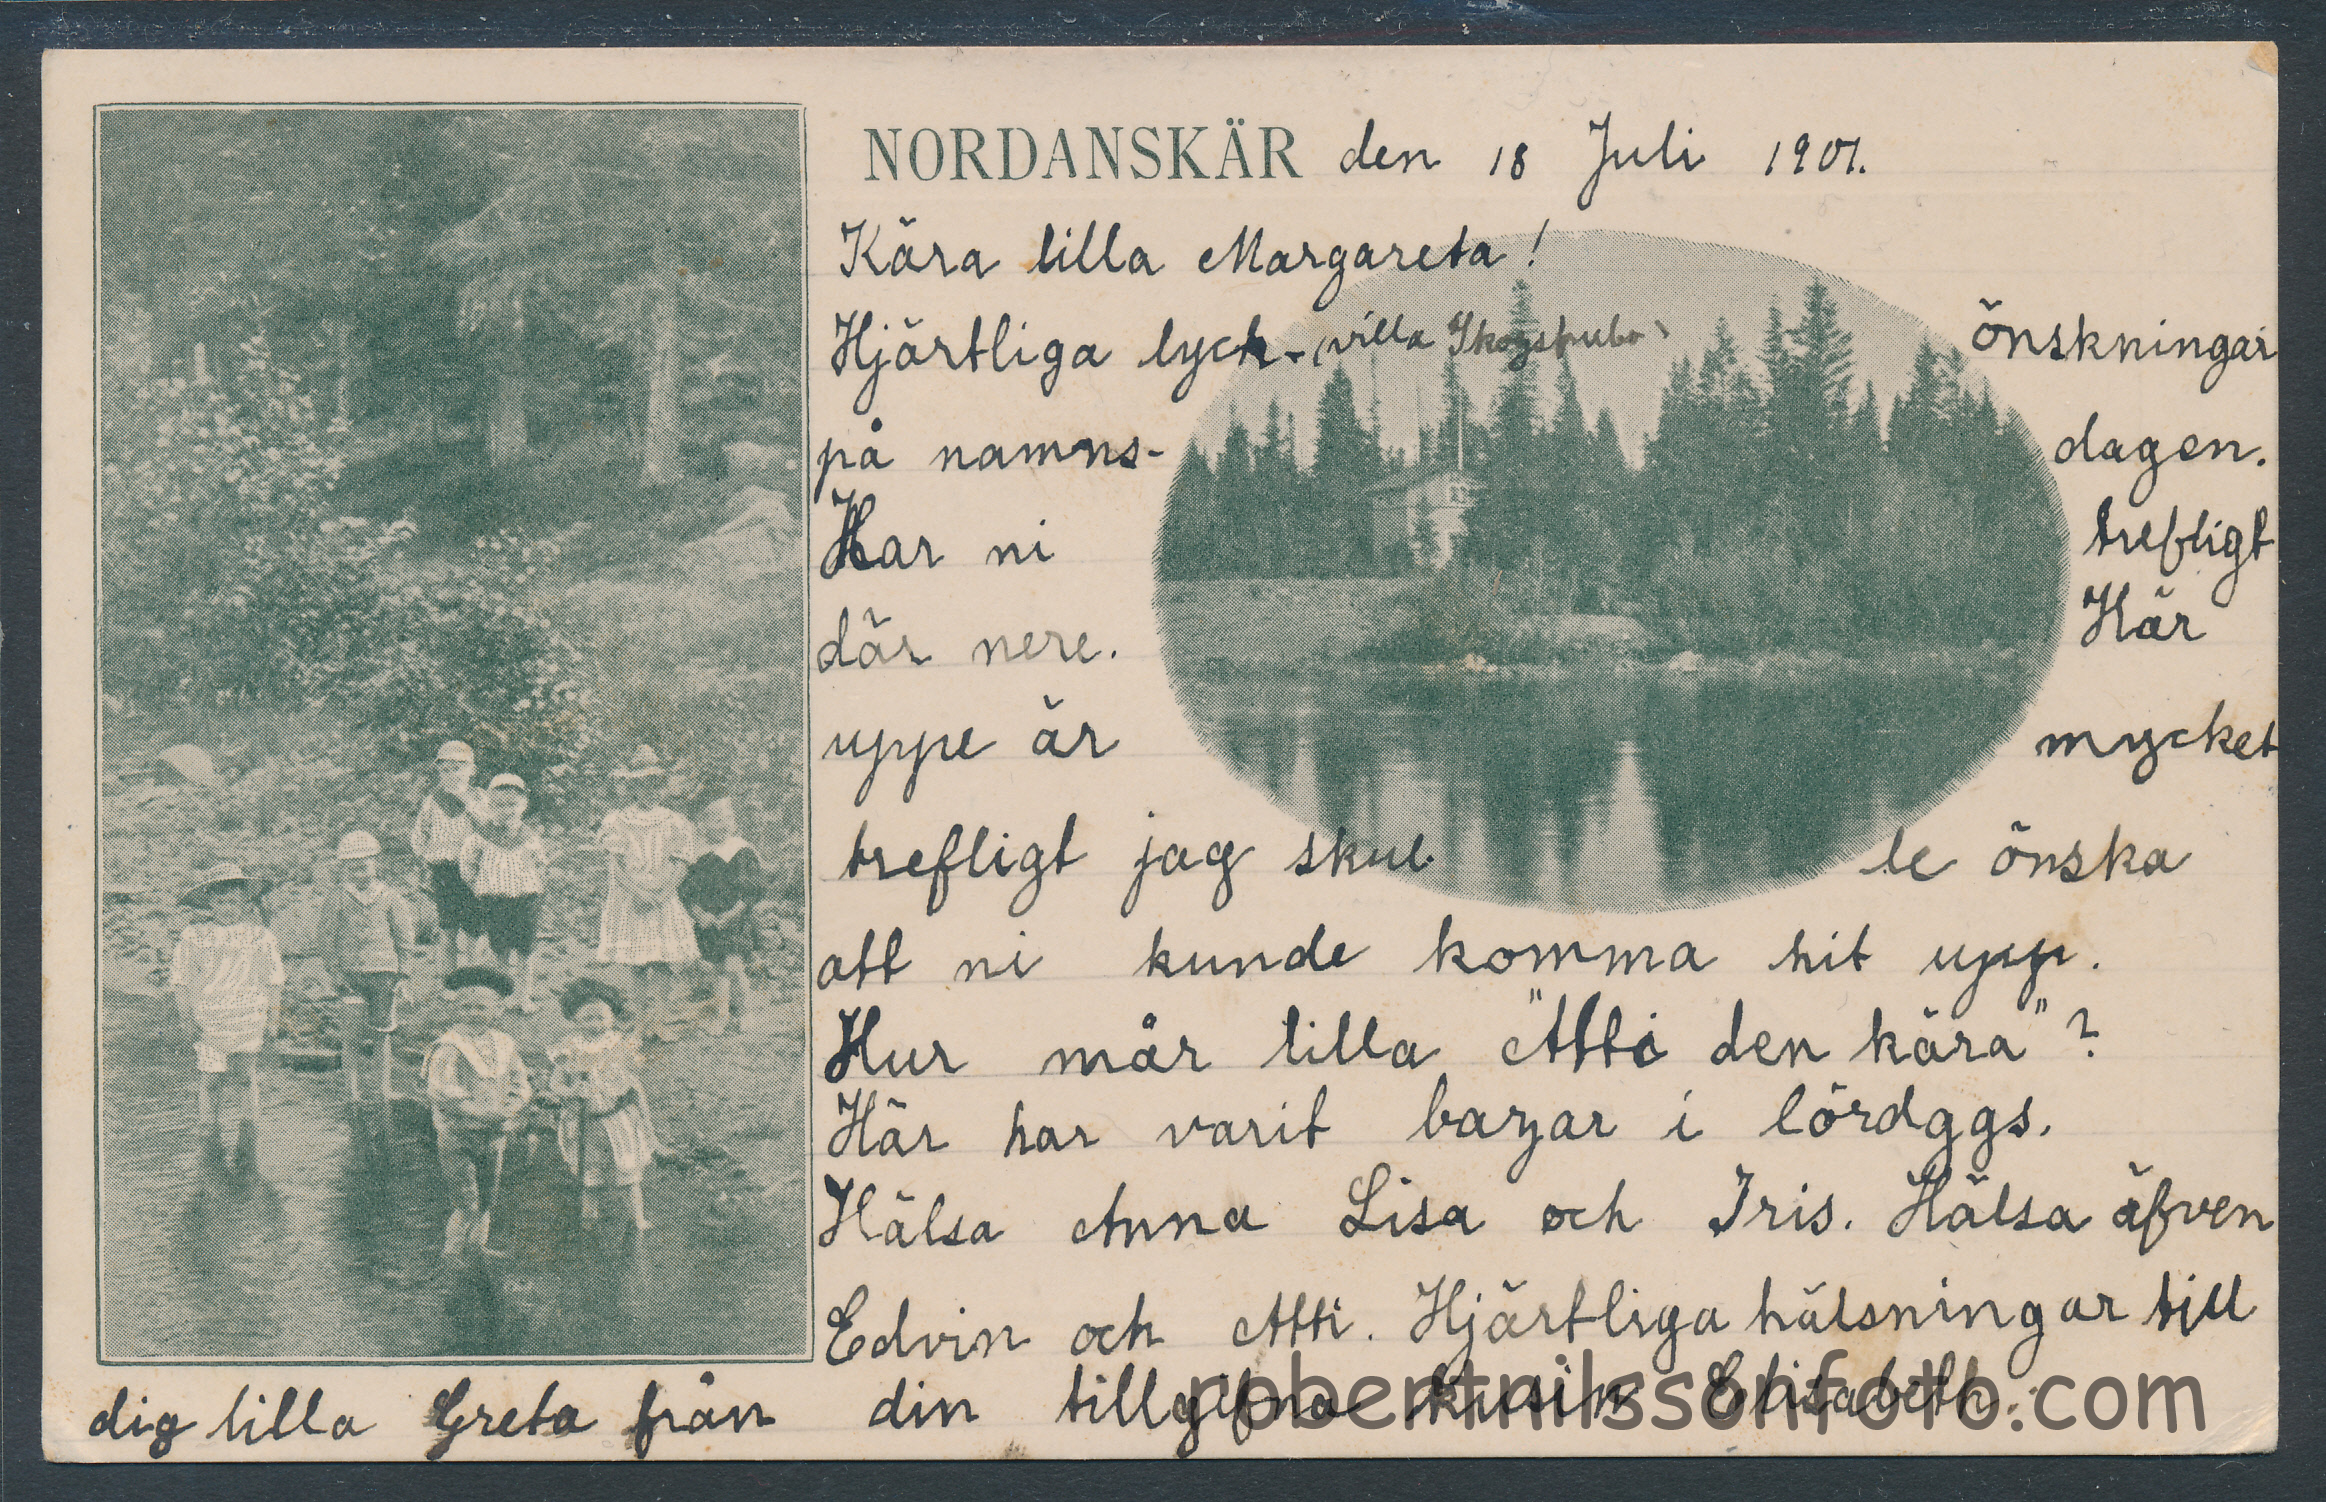 NORDANSKÄR den 18 Juli 1901.
Kära lilla Margareta!
Hjärtliga lyck- (villa önskningar
på namns- dagen.
Har ni trefligt
där nere. Här
uppe är mycket
trefligt jag skul le önska
att ni kunde komma hit upp.
Hur mår lilla "Atti den kära"?
Här har varit bazar i lördggs.
Hälsa Anna Lisa och Iris. Hälsa äfven
Edvin och Atti. Hjärtliga hälsningar till
dig lilla Greta från din tillgifna kusin Elisabeth.
robertnilssonfoto.com